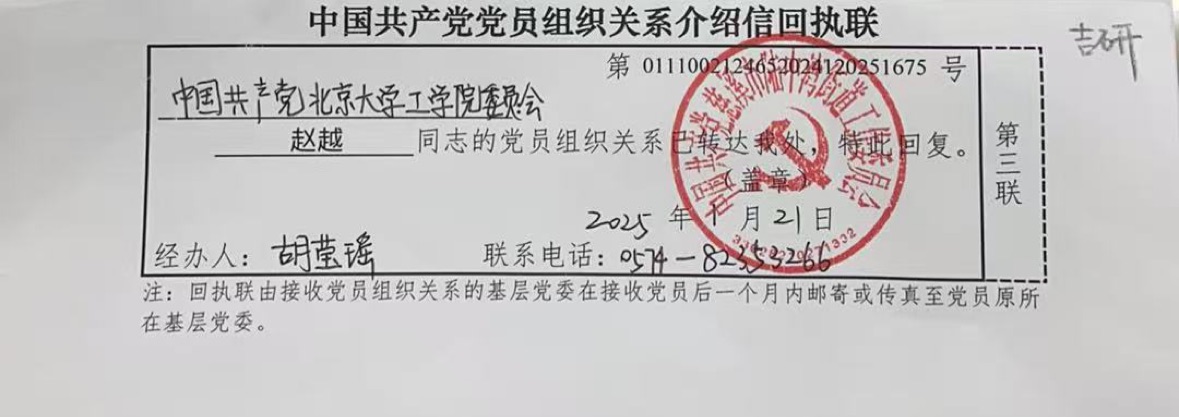 中国共产党党员组织关系介绍信回执联
吉研
第 0111002124652024120251675 号
中国共产党北京大学工学院委员会
赵越 同志的党员组织关系已转达我处，特此回复。
（盖章）
2025 年 1 月 21 日
经办人：胡莹瑶 联系电话：0574-82353266
第三联
注：回执联由接收党员组织关系的基层党委在接收党员后一个月内邮寄或传真至党员原所
在基层党委。